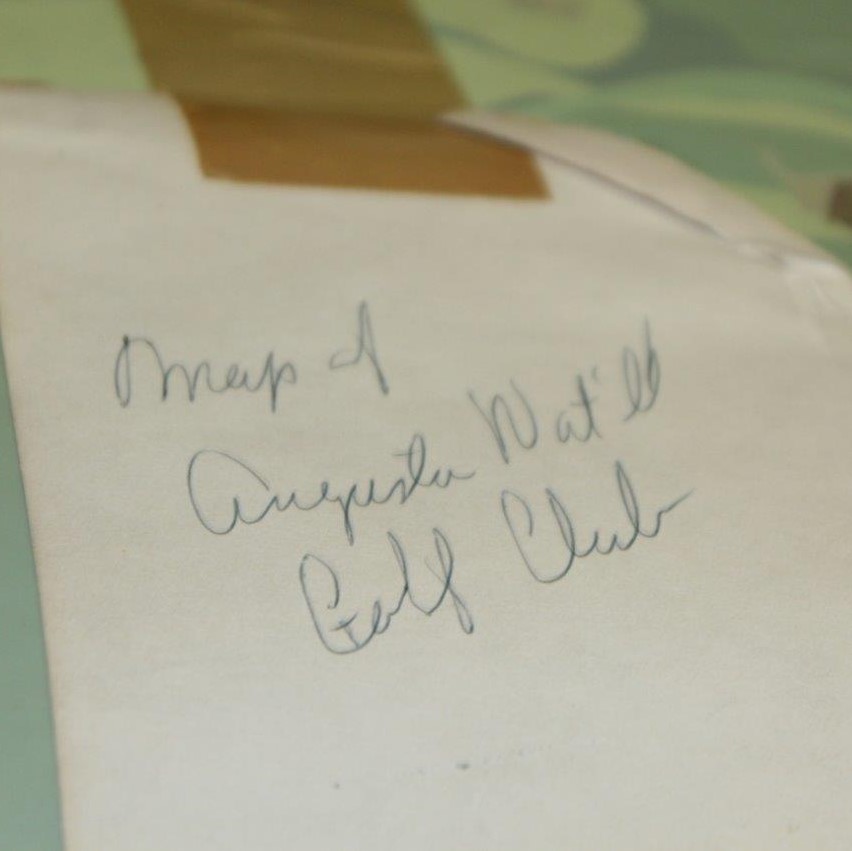 Map of
Augusta Nat'll
Golf Club